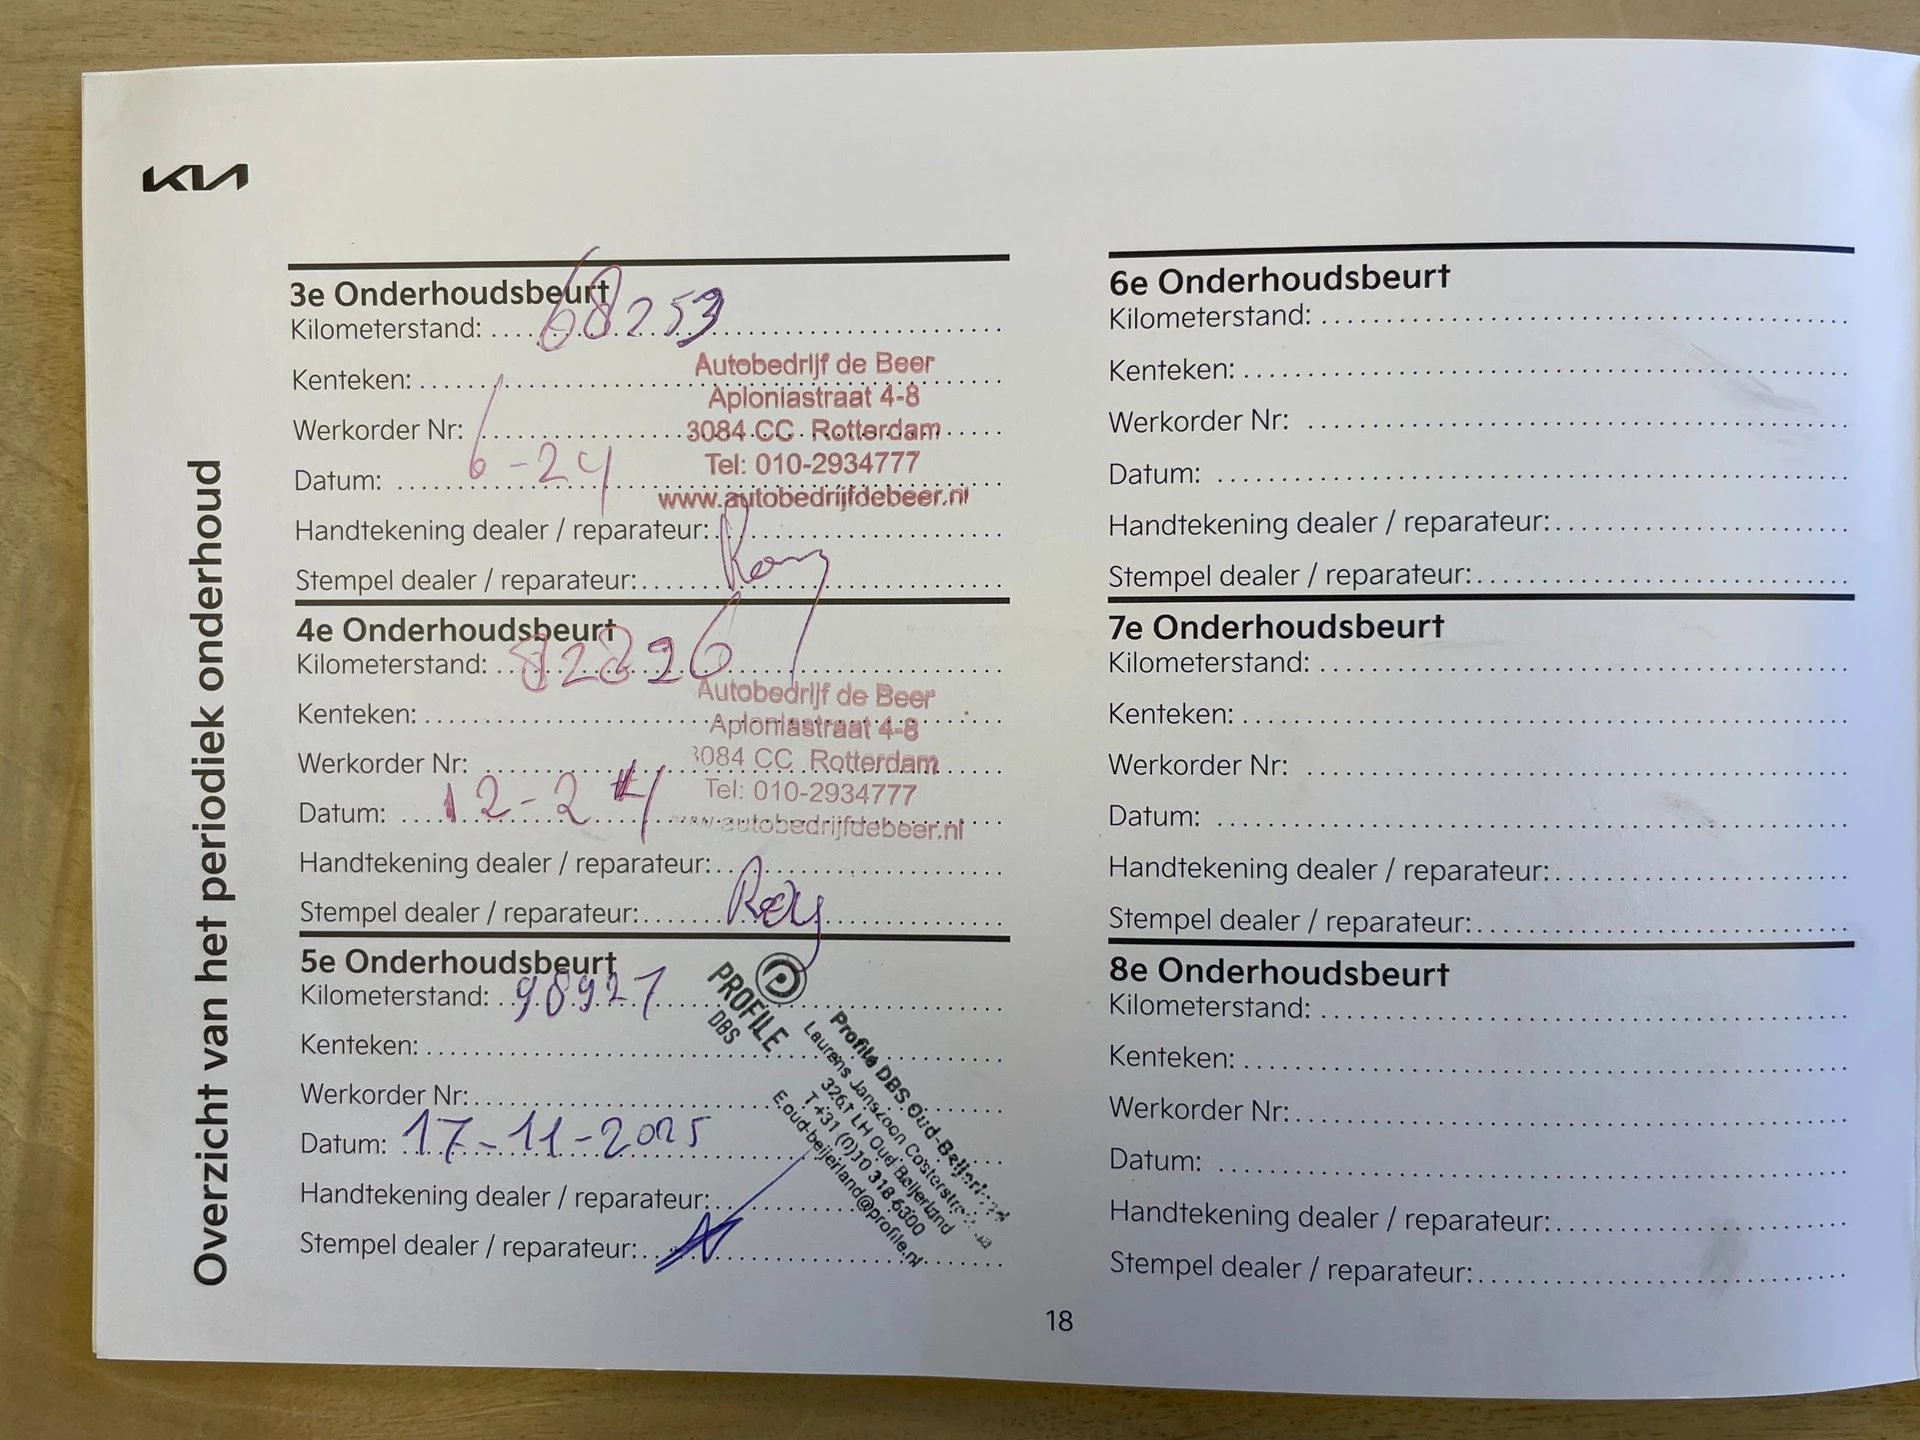 KIA
Overzicht van het periodiek onderhoud
3e Onderhoudsbeurt
Kilometerstand: 68253
Kenteken:
Werkorder Nr:
Datum: 6-24
Handtekening dealer / reparateur:
Stempel dealer / reparateur:
Autobedrijf de Beer
Aploniastraat 4-8
3084 CC Rotterdam
Tel: 010-2934777
www.autobedrijfdebeer.nl
4e Onderhoudsbeurt
Kilometerstand: 82896
Kenteken:
Werkorder Nr:
Datum: 12-24
Handtekening dealer / reparateur:
Stempel dealer / reparateur:
Autobedrijf de Beer
Aploniastraat 4-8
3084 CC Rotterdam
Tel: 010-2934777
www.autobedrijfdebeer.nl
5e Onderhoudsbeurt
Kilometerstand: 98927
Kenteken:
Werkorder Nr:
Datum: 17-11-2025
Handtekening dealer / reparateur:
Stempel dealer / reparateur:
PROFILE
DBS
Profile DBS Oud-Beijerland
Laurens Janszoon
3261 LH Oud Beijerland
T +31 (0)10 318 6300
E oud-beijerland@profile.nl
6e Onderhoudsbeurt
Kilometerstand:
Kenteken:
Werkorder Nr:
Datum:
Handtekening dealer / reparateur:
Stempel dealer / reparateur:
7e Onderhoudsbeurt
Kilometerstand:
Kenteken:
Werkorder Nr:
Datum:
Handtekening dealer / reparateur:
Stempel dealer / reparateur:
8e Onderhoudsbeurt
Kilometerstand:
Kenteken:
Werkorder Nr:
Datum:
Handtekening dealer / reparateur:
Stempel dealer / reparateur:
18